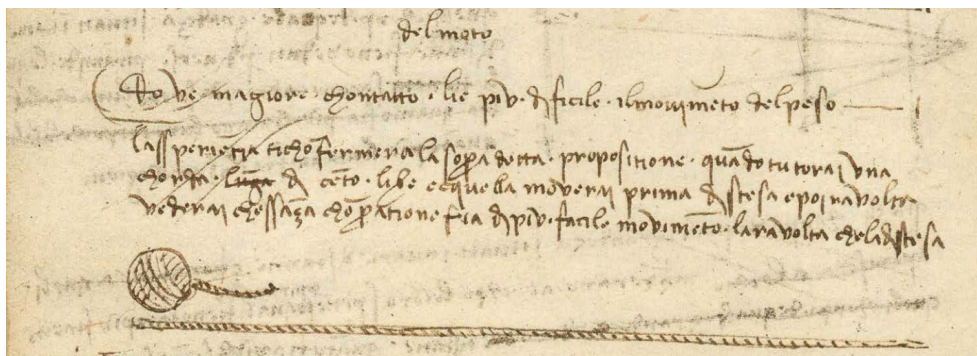 del moto
Do ve magiore chontatto · lie piv · difficile · il movimeto del peso
lassperietia ti chofermera la sopra dotta · propositione · quado tu torai vna
chorda · luga di ceto · libe e cquella moverai prima distesa e poi ravolta
vederai chessaza choparatione fia di piv · facile movimeto · la ravolta che la distesa